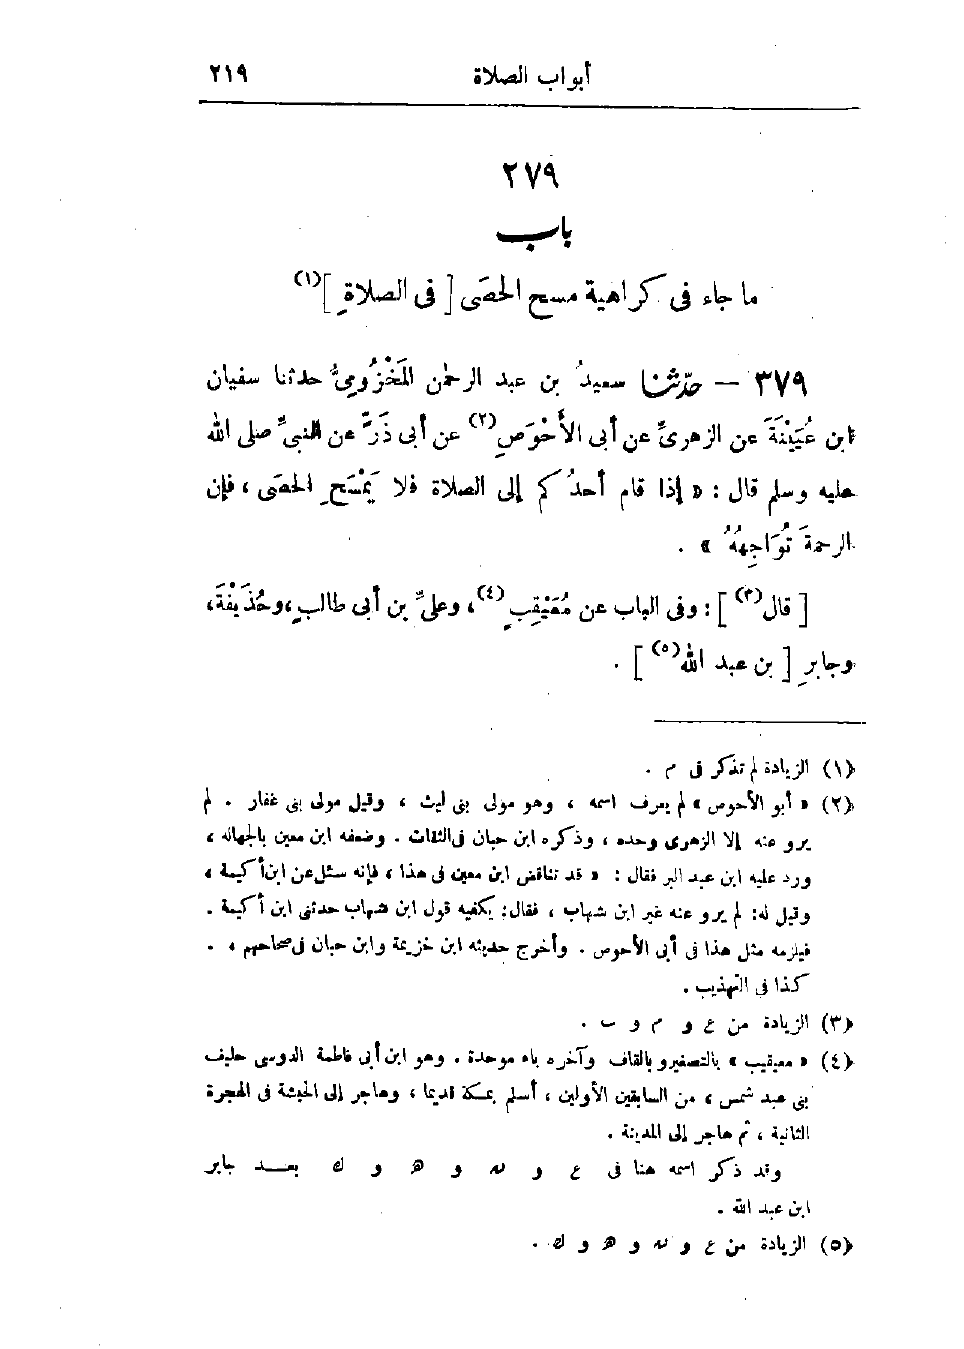 أبواب الصلاة ٢١٩
٢٧٩
باب
ما جاء فى كراهية مسح الحصَى [ فى الصلاةِ ](١)
٣٧٩ — حدّثنا سعيدُ بن عبد الرحمٰن المَخْزُومِىُّ حدثنا سفيان
ابن عُيَيْنَةَ عن الزهرىِّ عن أبى الأَحْوَصِ(٢) عن أبى ذَرٍّ عن النبىِّ صلى الله
عليه وسلم قال : « إذا قام أحدُكم إلى الصلاة فلا يَمْسَحِ الحصَى ، فإن
الرحمةَ تُوَاجِهُهُ » .
[ قال(٣) ] : وفى الباب عن مُعَيْقِبٍ(٤) ، وعلىِّ بن أبى طالبٍ ، وحُذَيْفَةَ ،
وجابرِ [ بن عبد الله(٥) ] .
(١) الزيادة لم تذكر فى م .
(٢) « أبو الأحوص » لم يعرف اسمه ، وهو مولى بنى ليث ، وقيل مولى بنى غفار . لم
يرو عنه إلا الزهرى وحده ، وذكره ابن حبان فى الثقات . وضعفه ابن معين بالجهالة ،
ورد عليه ابن عبد البر فقال : « قد تناقض ابن معين فى هذا ، فإنه سئل عن ابن أكيمة ،
وقيل له: لم يرو عنه غير ابن شهاب ، فقال: يكفيه قول ابن شهاب حدثنى ابن أكيمة .
فيلزمه مثل هذا فى أبى الأحوص . وأخرج حديثه ابن خزيمة وابن حبان فى صحاحهم » .
كذا فى التهذيب .
(٣) الزيادة من ع و م و ب .
(٤) « معيقيب » بالتصغير وبالقاف وآخره باء موحدة . وهو ابن أبى فاطمة الدوسى حليف
بنى عبد شمس ، من السابقين الأولين ، أسلم بمكة قديما ، وهاجر إلى الحبشة فى الهجرة
الثانية ، ثم هاجر إلى المدينة .
وقد ذكر اسمه هنا فى ع و نه و ه و ك بعد جابر
ابن عبد الله .
(٥) الزيادة من ع و نه و ه و ك .